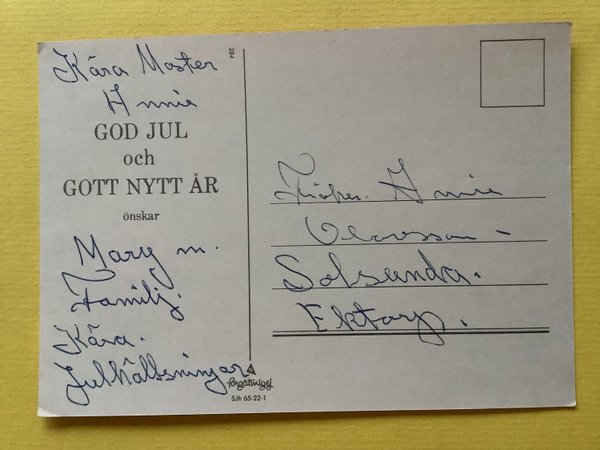 Kära Moster
Annie
GOD JUL
och
GOTT NYTT ÅR
önskar
Mary m.
Familj.
Kära.
Julhälsningar
284
Fröken Annie
Olovsson
Solsunda.
Ektorp.
SJh 65-22-1